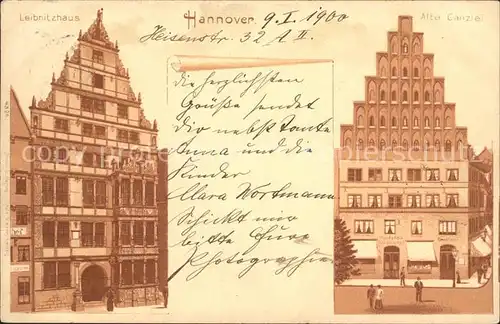 Leibnitzhaus
Hannover
9. I. 1900
Alte Canzlei
Heisenstr. 32 A II.
Die herzlichsten
Grüße sendet
Dir nebst Tante
Anna und die
Kinder
Clara Wortmann
Schickt mir
bitte Eure
Photographie